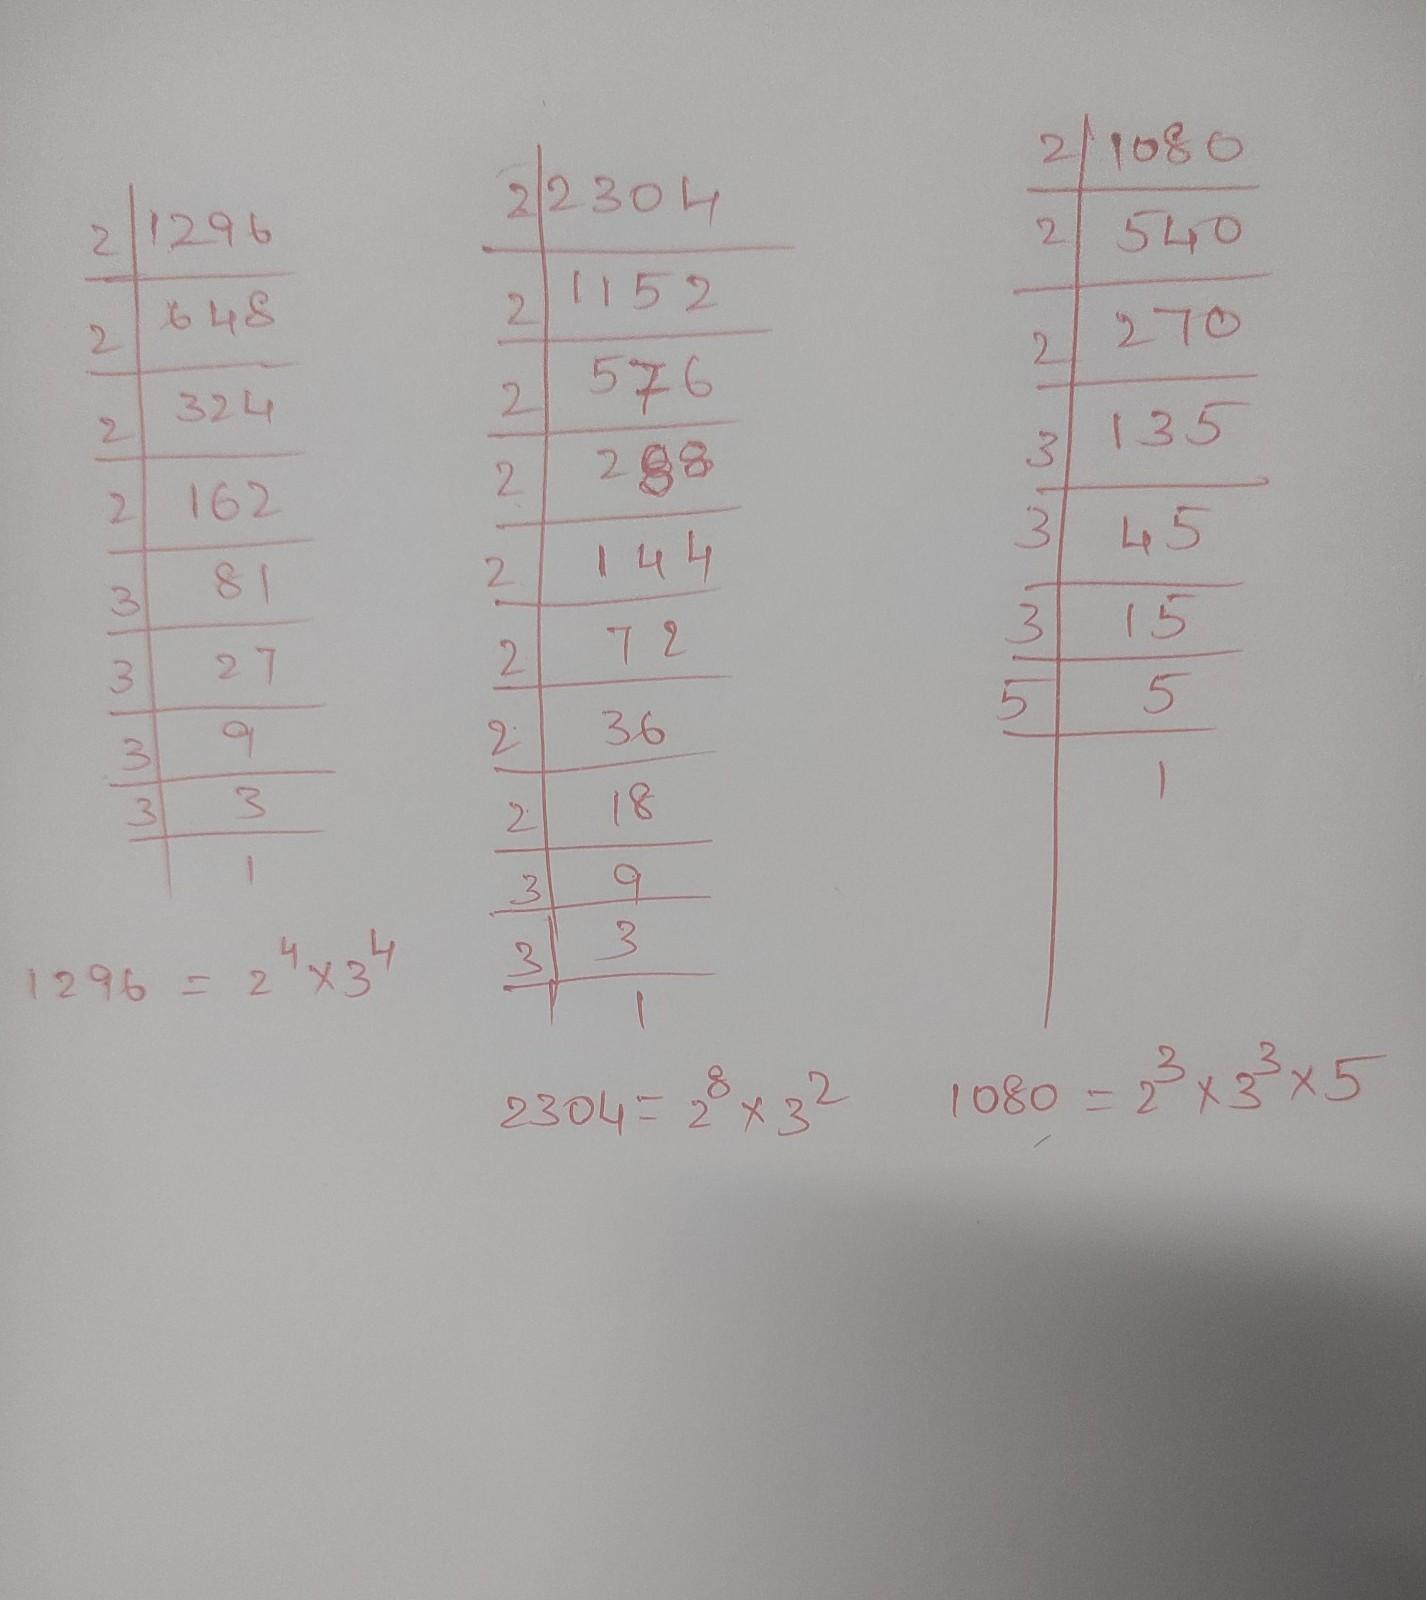 2 1296
2 648
2 324
2 162
3 81
3 27
3 9
3 3
1
1296 = 2^4 × 3^4
2 2304
2 1152
2 576
2 288
2 144
2 72
2 36
2 18
3 9
3 3
1
2304 = 2^8 × 3^2
2 1080
2 540
2 270
3 135
3 45
3 15
5 5
1
1080 = 2^3 × 3^3 × 5